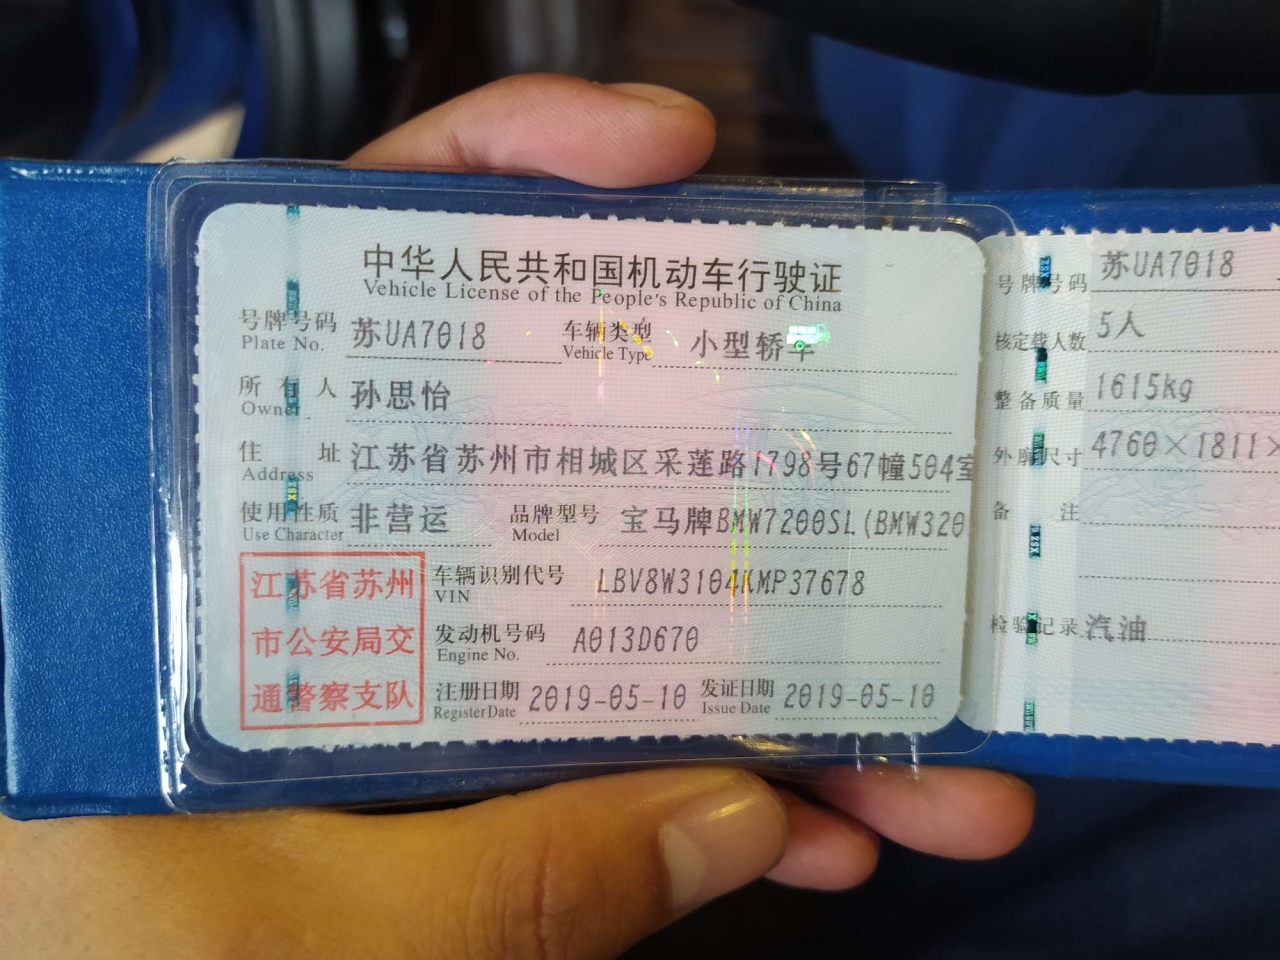 中华人民共和国机动车行驶证
Vehicle License of the People's Republic of China
号牌号码 苏UA7018 车辆类型 小型轿车
Plate No. Vehicle Type
所有人 孙思怡
Owner
住址 江苏省苏州市相城区采莲路1798号67幢504室
Address
使用性质 非营运 品牌型号 宝马牌BMW7200SL(BMW320
Use Character Model
江苏省苏州
市公安局交
通警察支队
车辆识别代号 LBV8W3104KMP37678
VIN
发动机号码 A013D670
Engine No.
注册日期 2019-05-10 发证日期 2019-05-10
Register Date Issue Date
号牌号码 苏UA7018
核定载人数 5人
整备质量 1615kg
外廓尺寸 4760×1811×
备注
检验记录 汽油